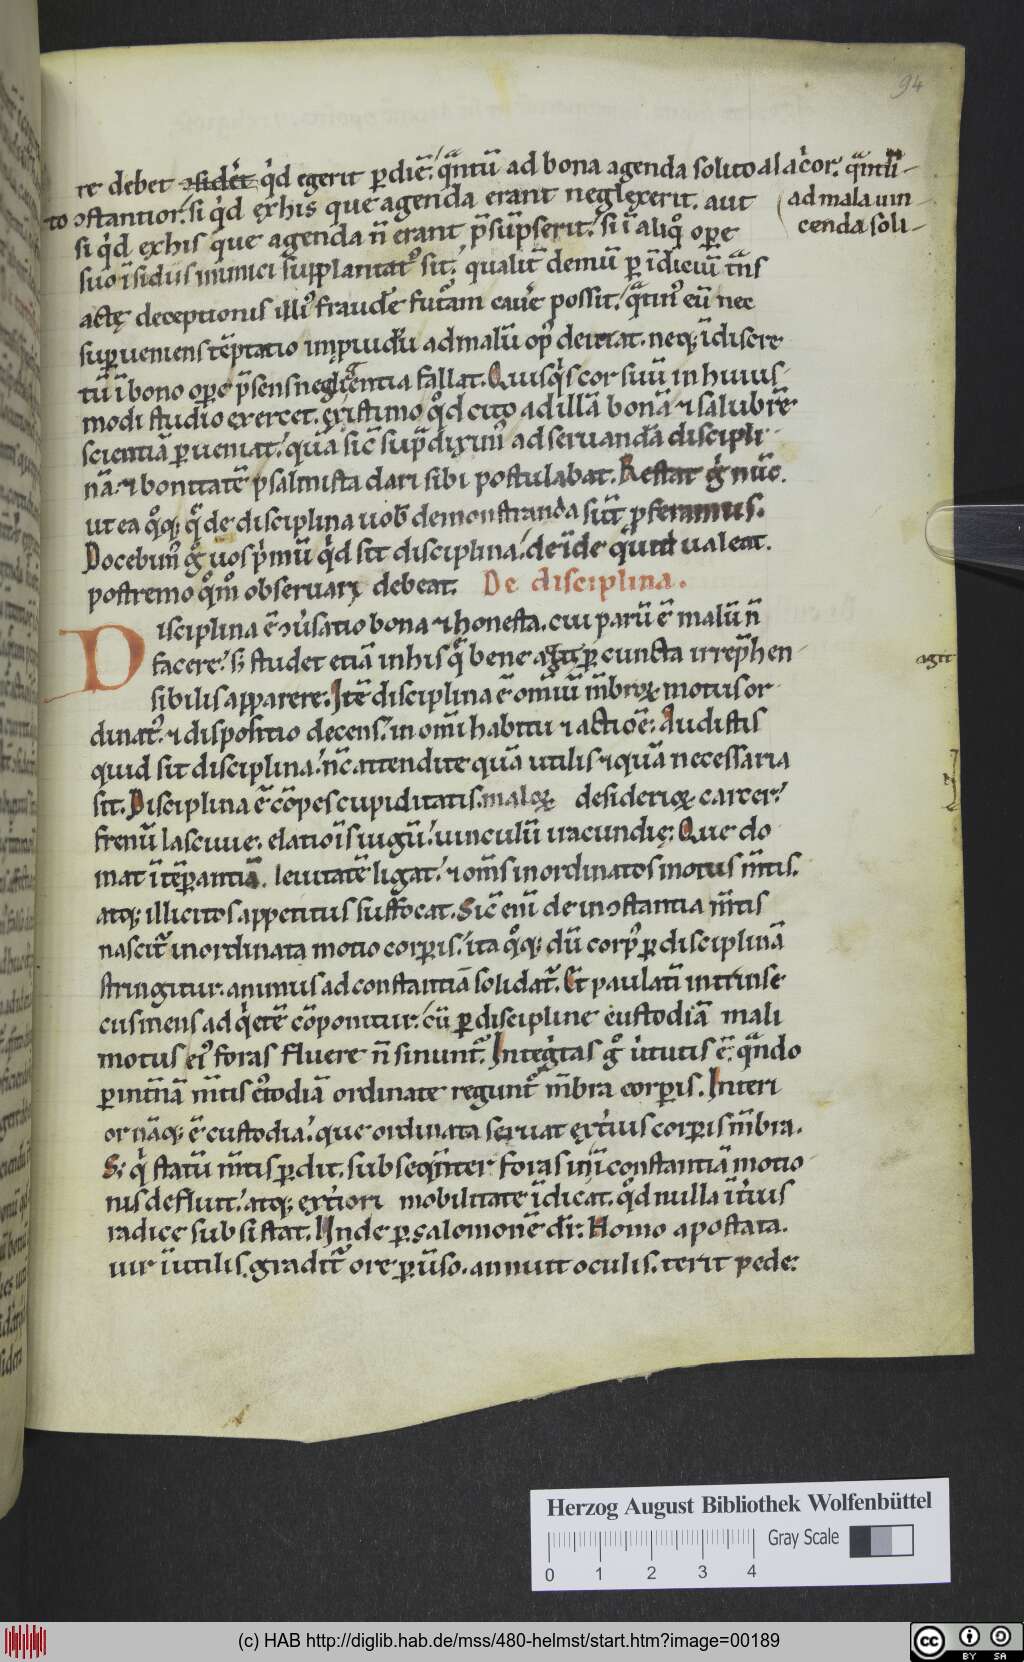 94
re debet ↄsidet q̇d egerit ꝑ diē. qͣntū ad bona agenda solito alac̓or. qͣntū
ad mala uin
cenda soli
to ↄstantior. si q̇d ex his que agenda erant neglexerit. aut
si q̇d ex his que agenda n̄ erant p̄sūpserit. si ī aliqͦ oꝑe
suo īsidiis inimici supplantatꝰ sit. qualit̄ demū ꝑ īdiciū t̄ns
actę deceptionis illiꝰ fraudē futͣam cau̓e possit. qͣtinꝰ eū nec
suꝑueniens tēptatio īpuidū ad malū opꝰ deiciat. neq; īdiscre
tū ī bono oꝑe p̄sens negligentia fallat. Quisq̇s cor suū in huius
modi studio exercet. existimo qͦd cito ad illā bonā ⁊ salubrē
scientiā ꝑueniat. quā sic̄ sup̄ diximꝰ ad seruandā discipli
nā. ⁊ bonitatē psalmista dari sibi postulabat. Restat gͦ nūc.
ut ea qͦq; q̄ de disciplina uob̄ demonstranda sūt ꝓferamus.
Docebimꝰ gͦ uos p̓mū q̇d sit disciplina. deīde qͣntū ualeat.
postremo qͦm̊ obseruari debeat. De disciplina.
Disciplina ē ↄu̓satio bona ⁊ honesta. cui parū ē malū n̄
facere. s; studet etiā in his q̄ bene agit ꝑ cuncta irrep̄hen
agit
sibilis apparere. Itē disciplina ē om̄iū m̄broꝝ motus or
dinatꝰ. ⁊ dispositio decens. in om̄i habitu ⁊ actiōe. Audistis
quid sit disciplina. nc̄ attendite quā utilis ⁊ quā necessaria
sit. Disciplina ē cōpes cupiditatis. maloꝝ desiderioꝝ carcer.
frenū lasciuie. elatiōis iugū. uinculū iracundię. Que do
mat ītēꝑantiā. leuitatē ligat. ⁊ om̄s inordinatos motus m̄tis.
atq; illicitos appetitus suffocat. Sic̄ eni̅ de inↄstantia m̄tis
nascit̄ inordinata motio corꝑis. ita qͦq; dū corpꝰ ꝑ disciplinā
stringitur. animus ad constantiā solidat̄. Et paulati̅ intrinse
cus mens ad q̇etē cōponitur. cū ꝑ discipline custodiā mali
motus eiꝰ foras fluere n̄ sinunt̄. Integ̓tas gͦ u̓tutis ē. qͣndo
ꝑ int̄nā m̄tis cꝰtodiā ordinate regunt̄ m̄bra corꝑis. Interi
or nāq; ē custodia. que ordinata seruat ext̓ius corꝑis m̄bra.
S; q̇ statū m̄tis ꝑdit. subseqͣnter foras in īconstantiā motio
nis defluit. atq; ext̓iori mobilitate īdicat. qͦd nulla īt̓ius
radice subsistat. Unde ꝑ salomonē dr̄. Homo apostata.
uir īutilis. gradit̄ ore ꝑu̓so. annuit oculis. terit pede.
Herzog August Bibliothek Wolfenbüttel
Gray Scale
0 1 2 3 4
(c) HAB http://diglib.hab.de/mss/480-helmst/start.htm?image=00189
cc BY SA